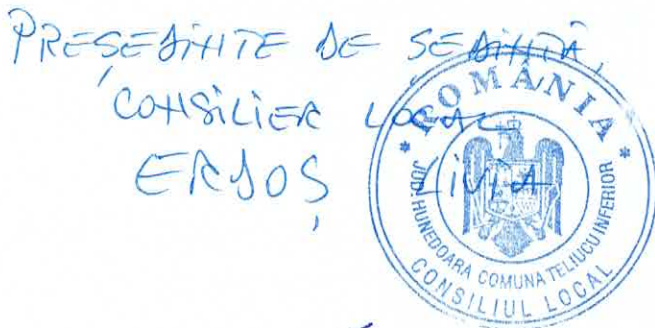 PREȘEDINTE DE ȘEDINȚĂ,
CONSILIER LOCAL
ERDOȘ LIVIA
* ROMÂNIA *
JUD. HUNEDOARA COMUNA TELIUCU INFERIOR
CONSILIUL LOCAL